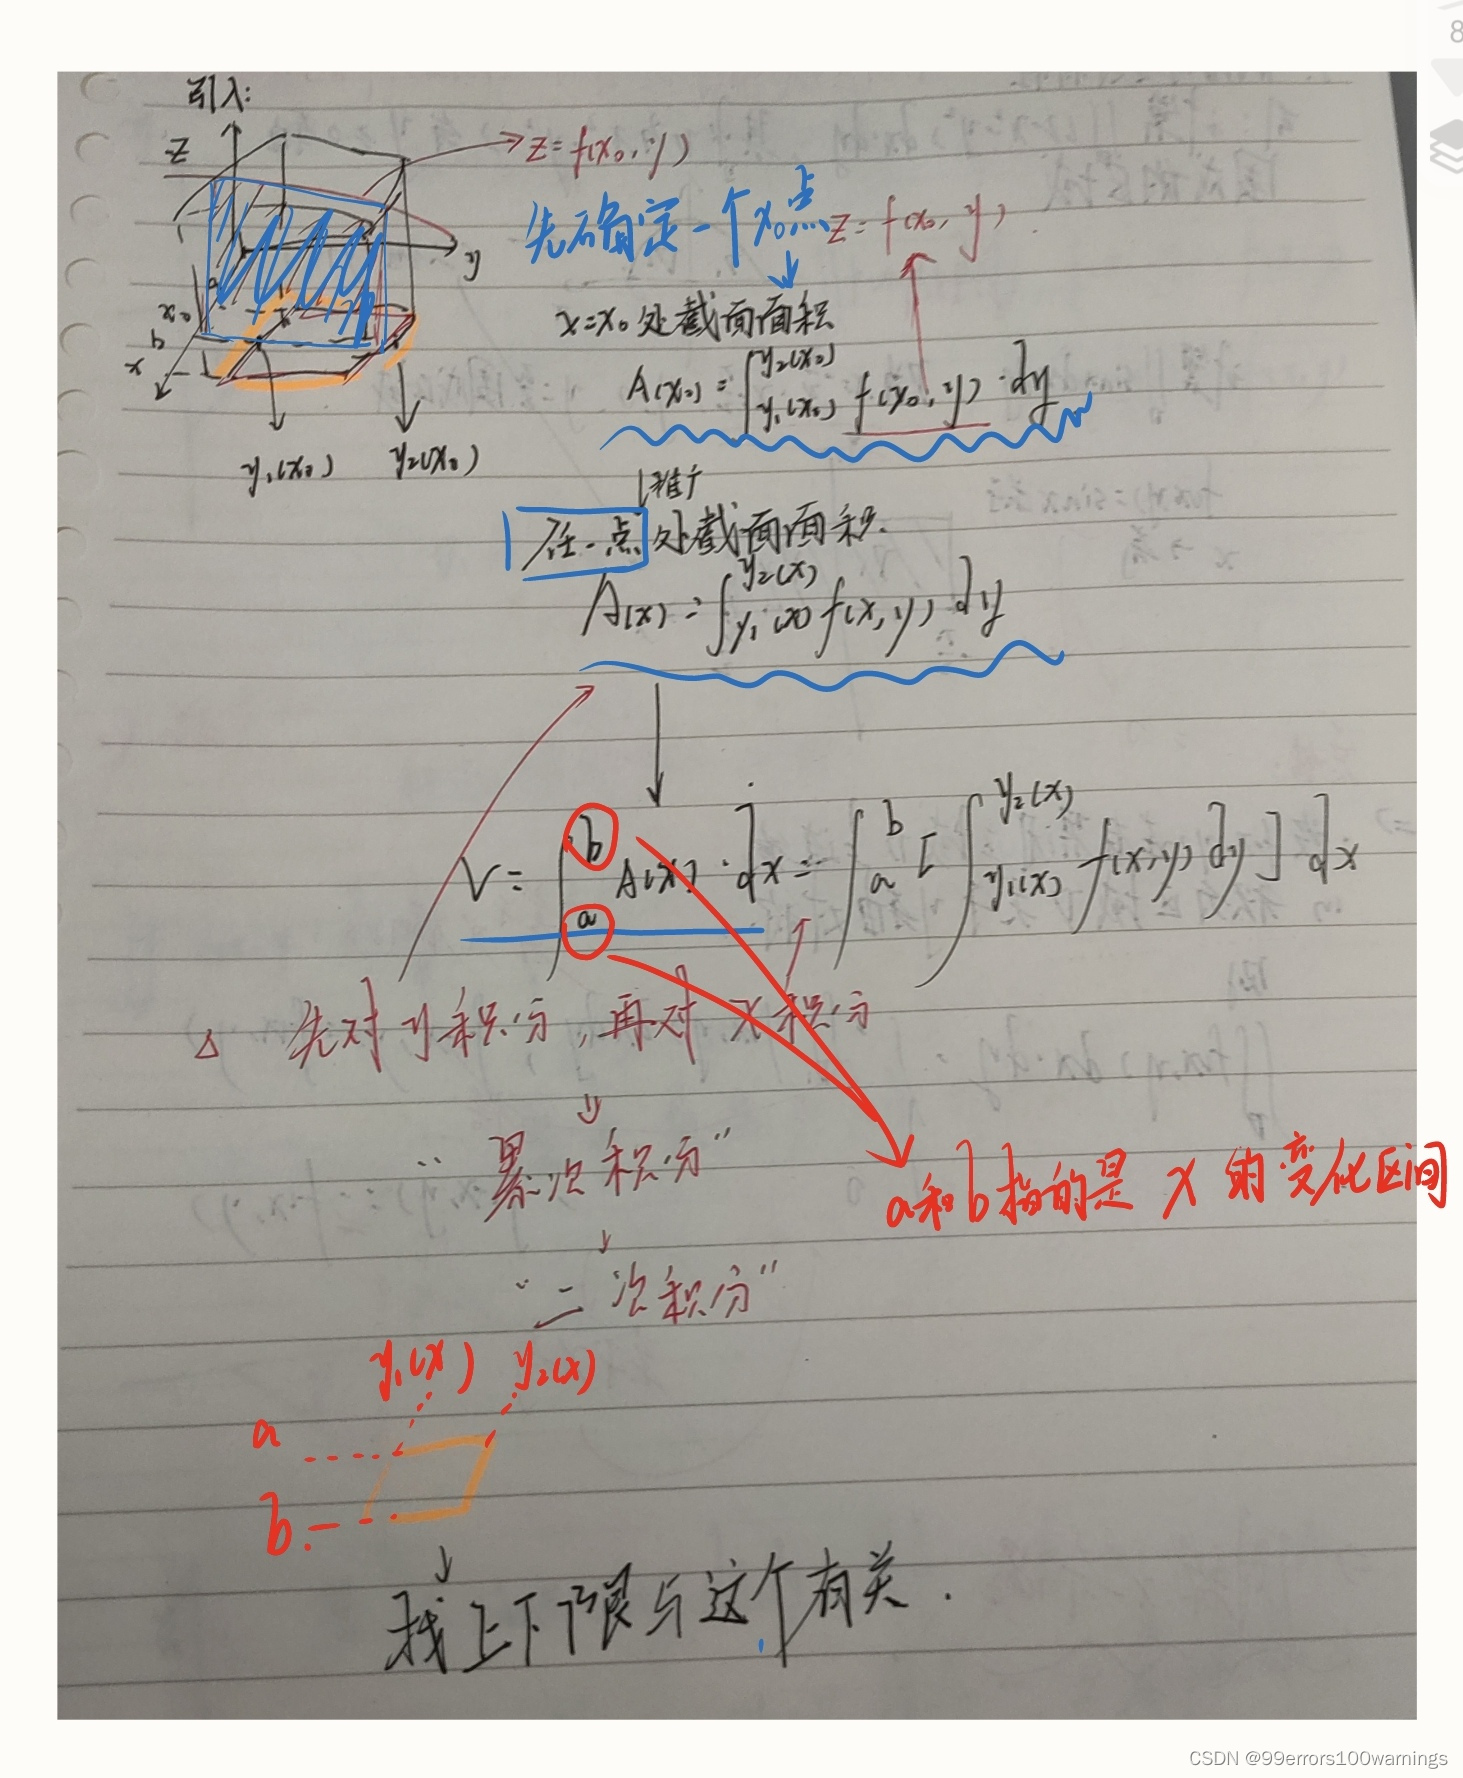 引入:
z
z=f(x₀,y)
先确定一个x₀点
z=f(x₀,y)
y
x₀
x
x=x₀处截面面积
A(x₀)=∫_{y₁(x₀)}^{y₂(x₀)} f(x₀,y)·dy
y₁(x₀) y₂(x₀)
↓推广
任一点处截面面积.
A(x)=∫_{y₁(x)}^{y₂(x)} f(x,y)dy
V=∫_a^b A(x)·dx=∫_a^b[∫_{y₁(x)}^{y₂(x)} f(x,y)dy]dx
△ 先对y积分,再对x积分
"累次积分"
a和b指的是x的变化区间
"二次积分"
y₁(x) y₂(x)
a
b
找上下限与这个有关.
CSDN @99errors100warnings
8